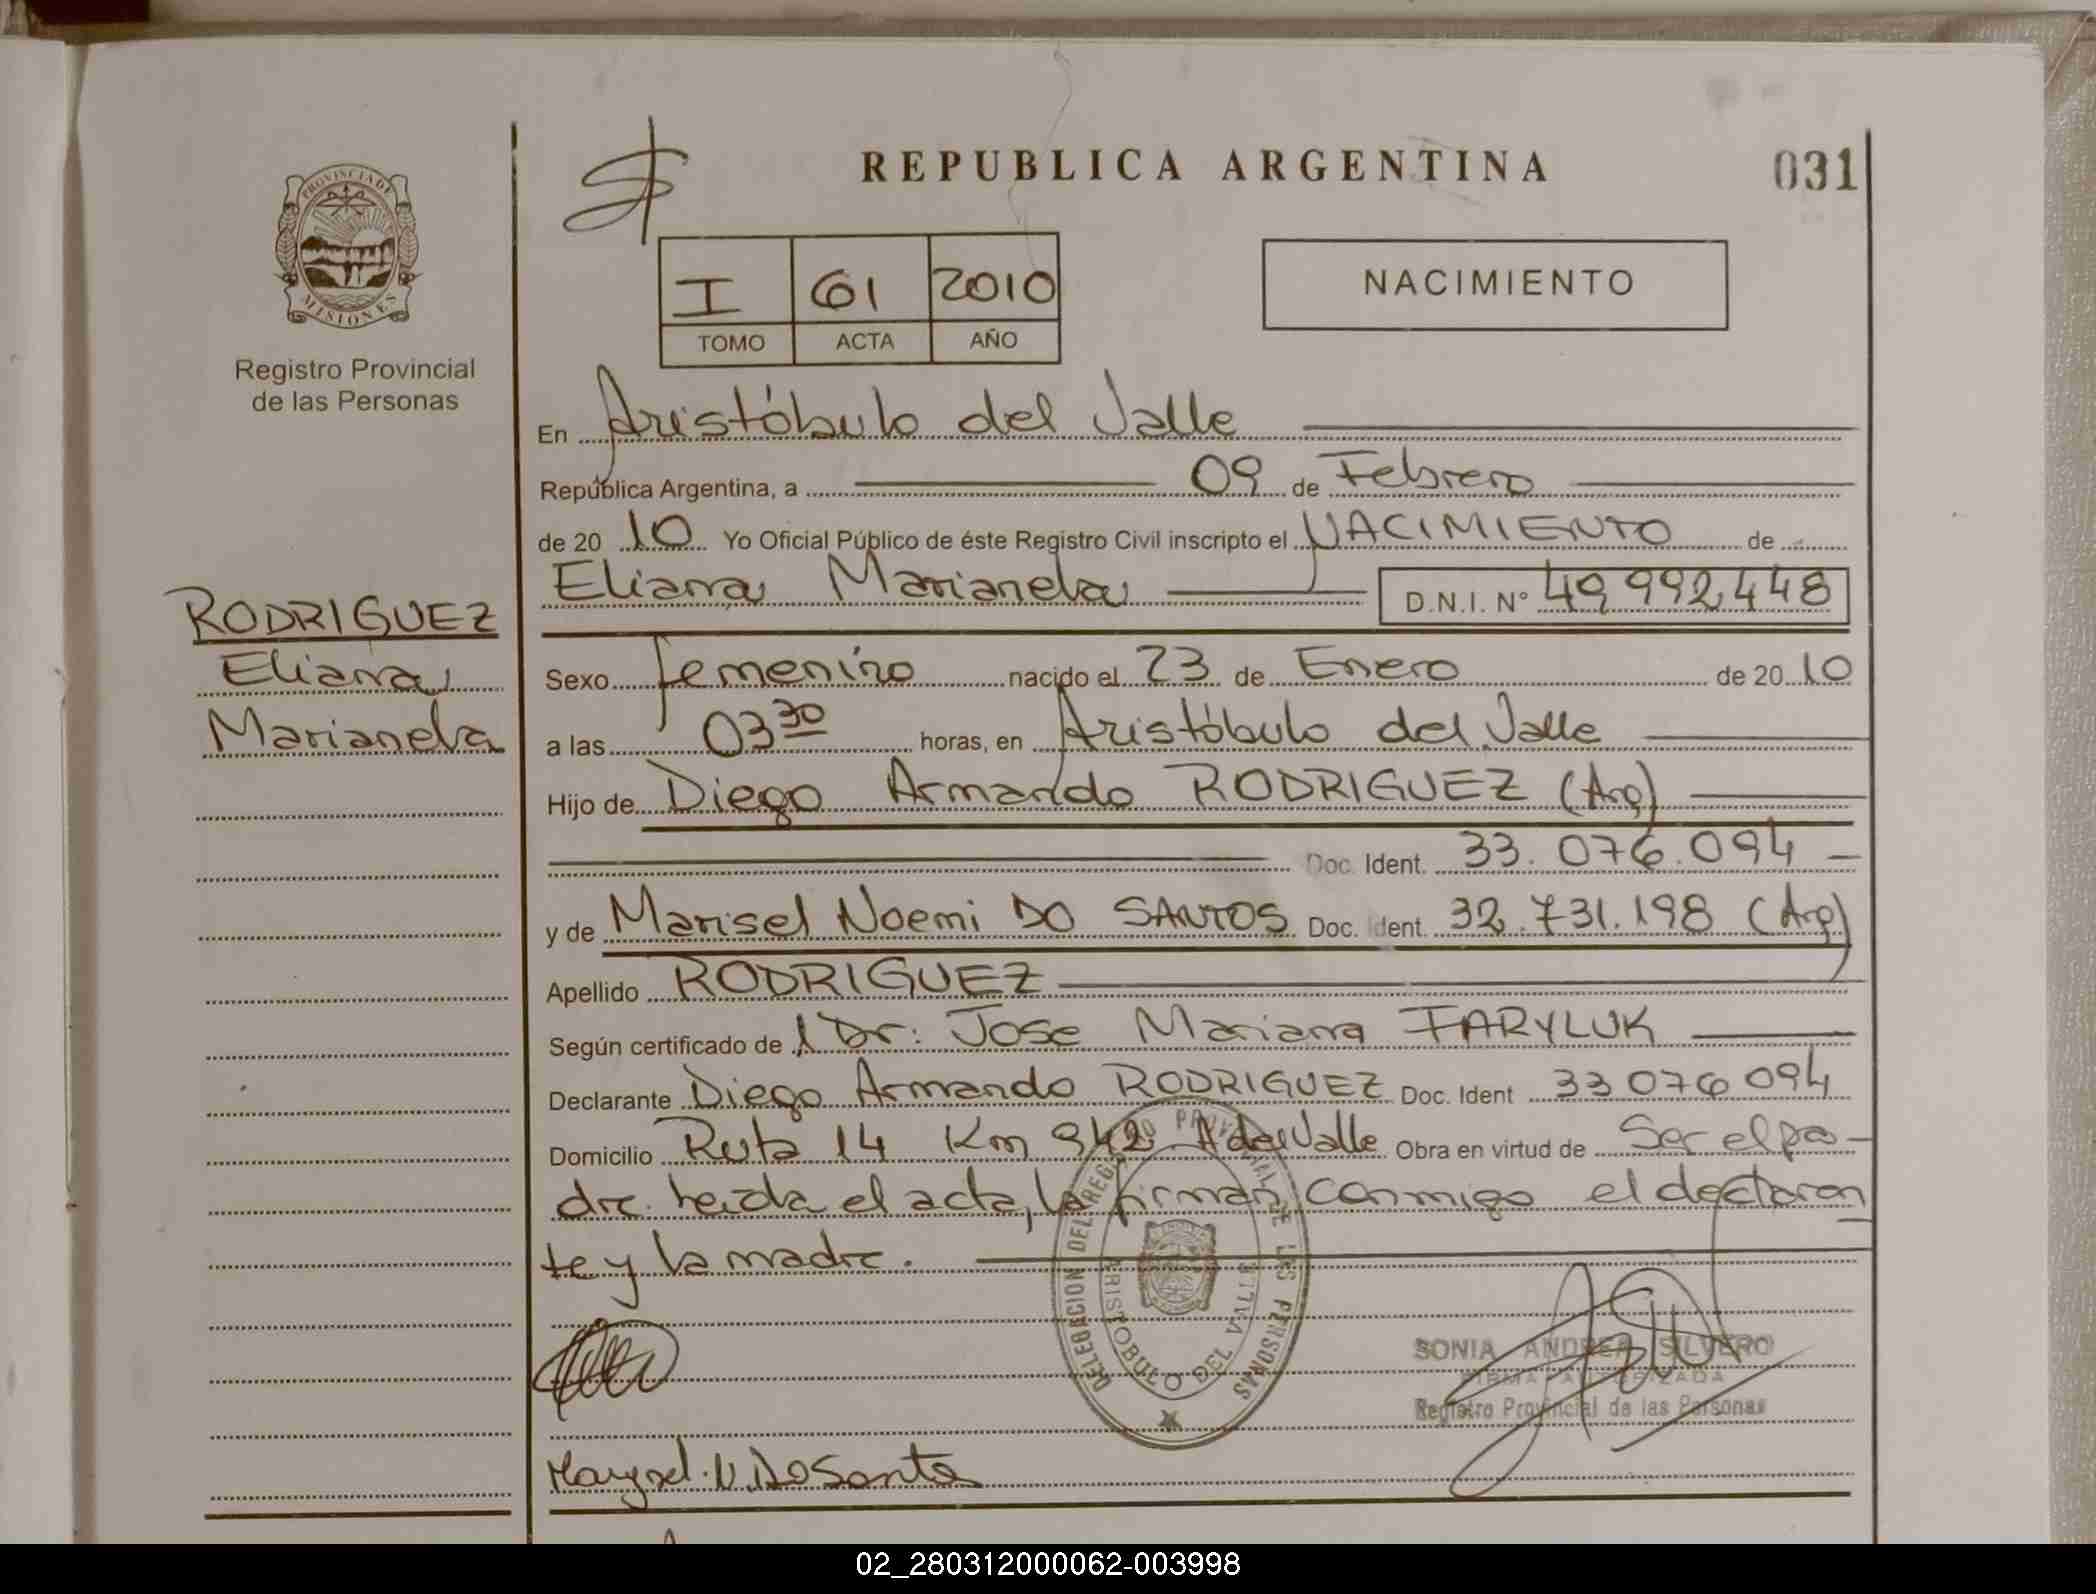 REPUBLICA ARGENTINA
031
PROVINCIA DE
MISIONES
Registro Provincial
de las Personas
I 61 2010
TOMO ACTA AÑO
NACIMIENTO
En Aristóbulo del Valle
República Argentina, a 09 de Febrero
de 20 10 Yo Oficial Público de éste Registro Civil inscripto el NACIMIENTO de
Eliana Marianela D.N.I. N° 49.992.448
RODRIGUEZ
Eliana
Marianela
Sexo femenino nacido el 23 de Enero de 20 10
a las 03 30 horas, en Aristóbulo del Valle
Hijo de Diego Armando RODRIGUEZ (Arg)
Doc. Ident. 33.076.094
y de Marisel Noemi DO SANTOS Doc. Ident. 32.731.198 (Arg)
Apellido RODRIGUEZ
Según certificado de l Dr: Jose Mariana FARYLUK
Declarante Diego Armando RODRIGUEZ Doc. Ident 33 076 094
Domicilio Ruta 14 Km 942 A del Valle Obra en virtud de Ser el pa-
dre. heida el acta, la firman conmigo el declaran
te y la madre.
DELEGACION DEL REGISTRO PROVINCIAL DE LAS PERSONAS
ARISTOBULO DEL VALLE
SONIA ANDREA SILVERO
FIRMA AUTORIZADA
Registro Provincial de las Personas
N. Do Santos
02_280312000062-003998